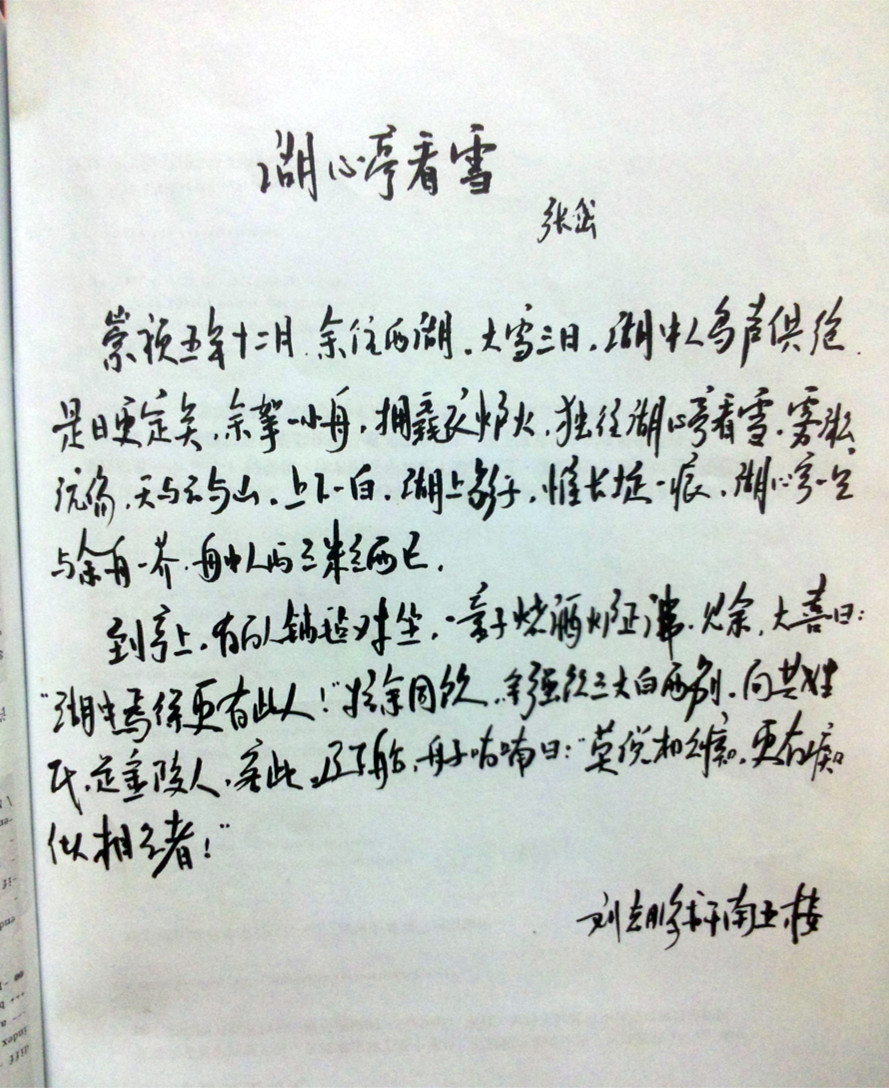 湖心亭看雪
张岱
崇祯五年十二月.余住西湖.大雪三日.湖中人鸟声俱绝.
是日更定矣,余挐一小舟,拥毳衣炉火,独往湖心亭看雪.雾凇
沆砀,天与云与山,上下一白,湖上影子,惟长堤一痕,湖心亭一点
与余舟一芥.舟中人两三粒而已.
到亭上,有两人铺毡对坐,一童子烧酒炉正沸.见余,大喜曰:
"湖中焉得更有此人!"拉余同饮.余强饮三大白而别.问其姓
氏,是金陵人,客此.及下船,舟子喃喃曰:"莫说相公痴.更有痴
似相公者!"
刘 于南五楼